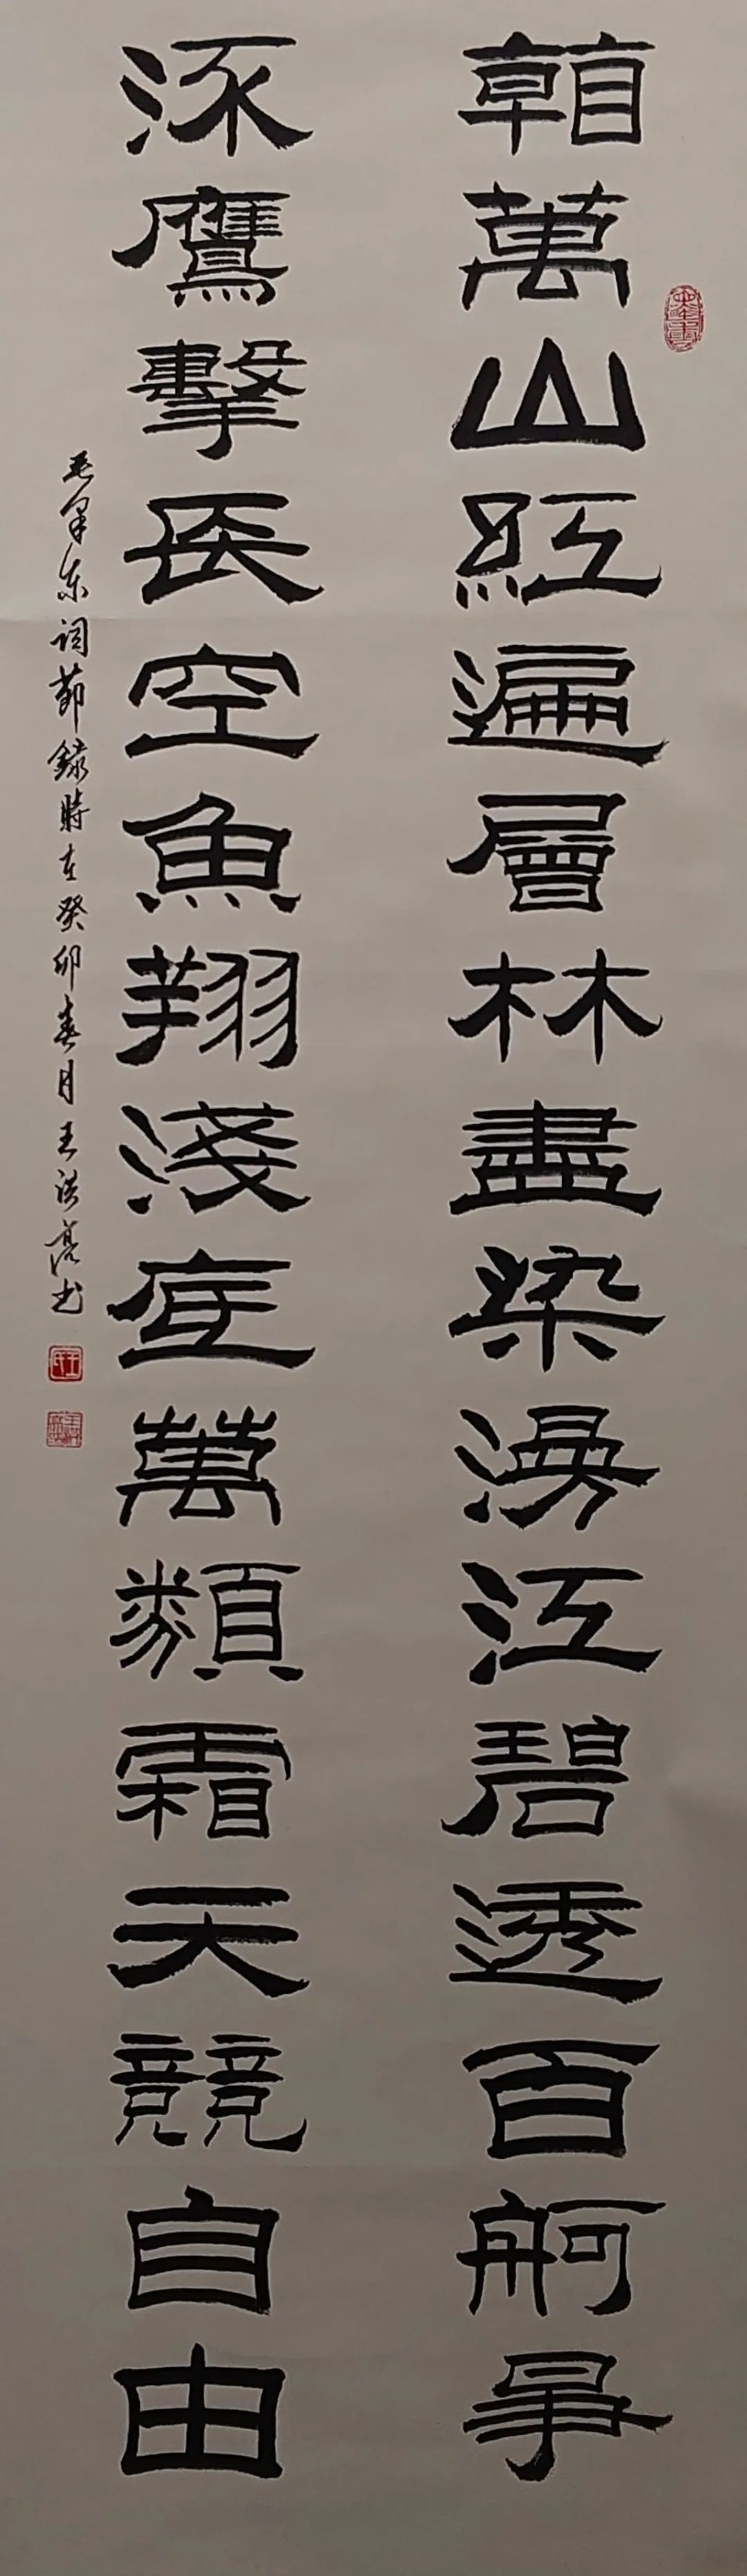 看萬山紅遍層林盡染漫江碧透百舸爭
流鷹擊長空魚翔淺底萬類霜天競自由
毛澤东词節錄時在癸卯春月王洪亮书